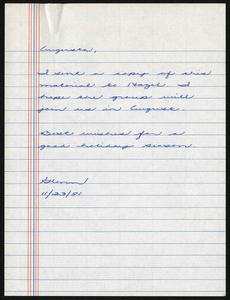 Augusta,
I sent a copy of this
material to Hazel. I
hope the group will
join us in August.
Best wishes for a
good holiday season.
Glenn
11/23/81